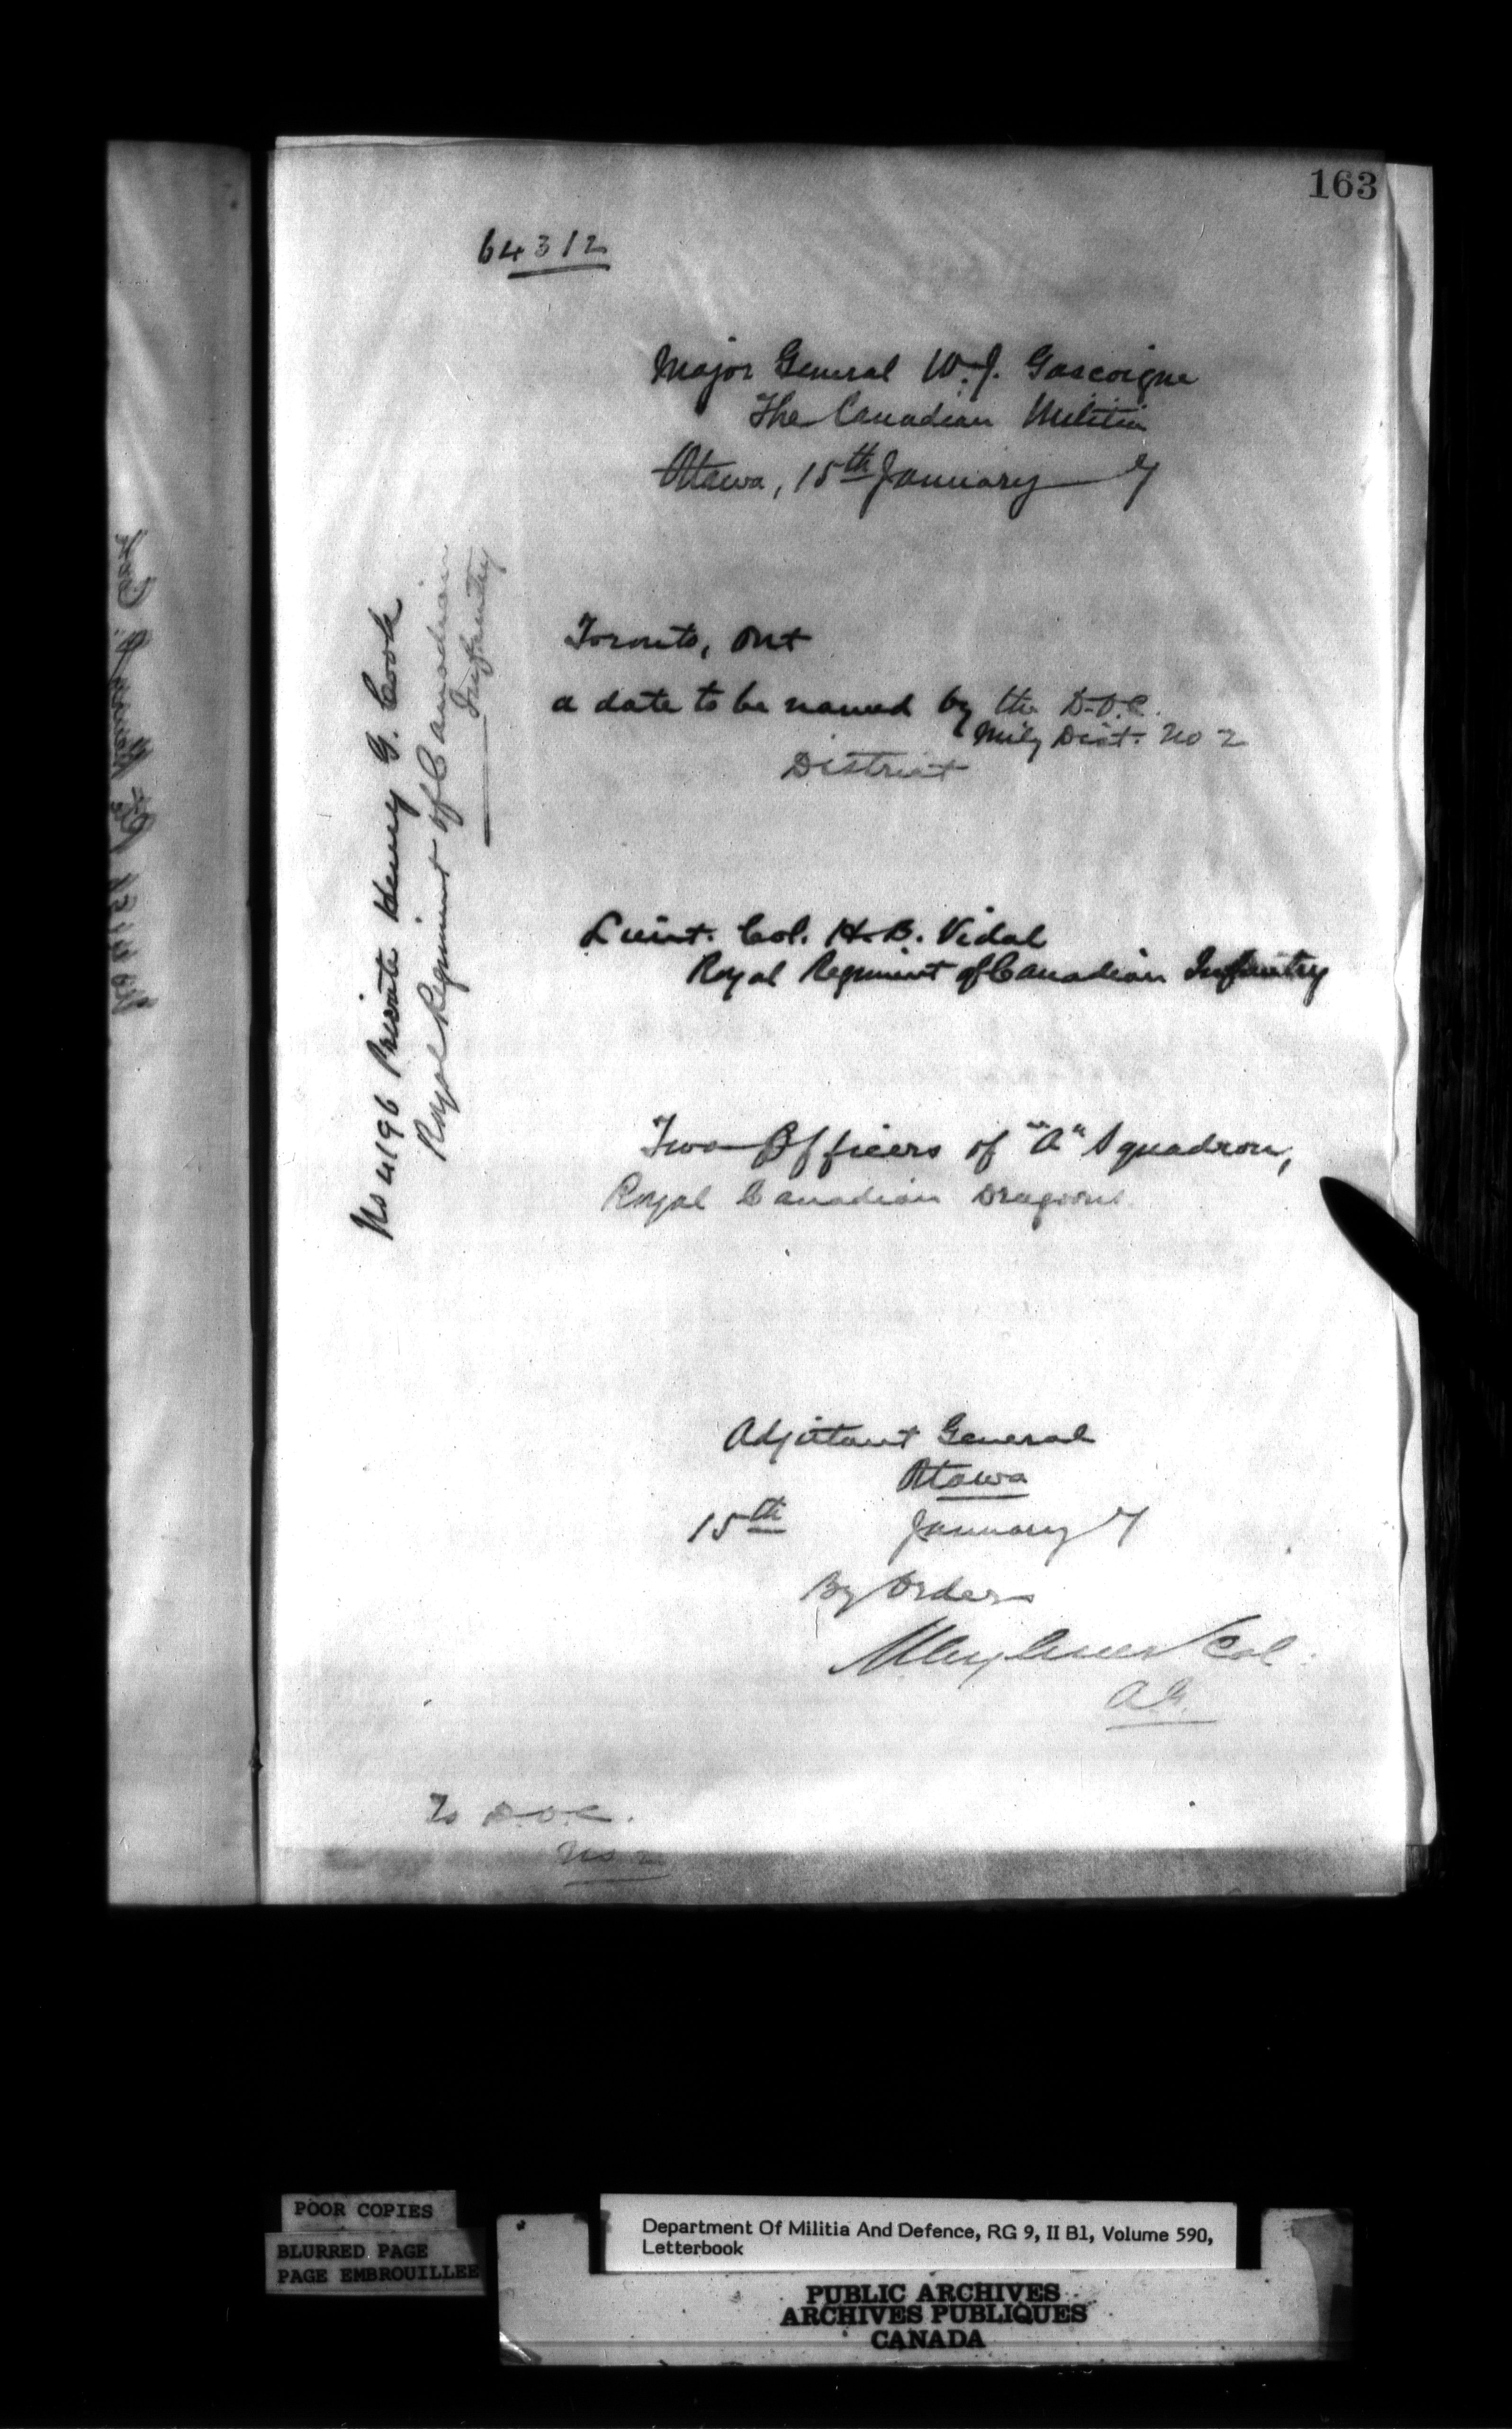 163
64312
Major General W. J. Gascoigne
The Canadian Militia
Ottawa, 15th January 7
No 4196 Private Henry G. Cook
Royal Regiment of Canadian
Infantry
Toronto, Ont
a date to be named by the D.O.C.
Mily Dist. No 2
District
Lieut. Col. H. B. Vidal
Royal Regiment of Canadian Infantry
Two Officers of "A" Squadron,
Royal Canadian Dragoons.
Adjutant General
Ottawa
15th January 7
By Order
Col.
A.G.
To D.O.C.
No 2
POOR COPIES
BLURRED PAGE
PAGE EMBROUILLEE
Department Of Militia And Defence, RG 9, II B1, Volume 590,
Letterbook
PUBLIC ARCHIVES
ARCHIVES PUBLIQUES
CANADA